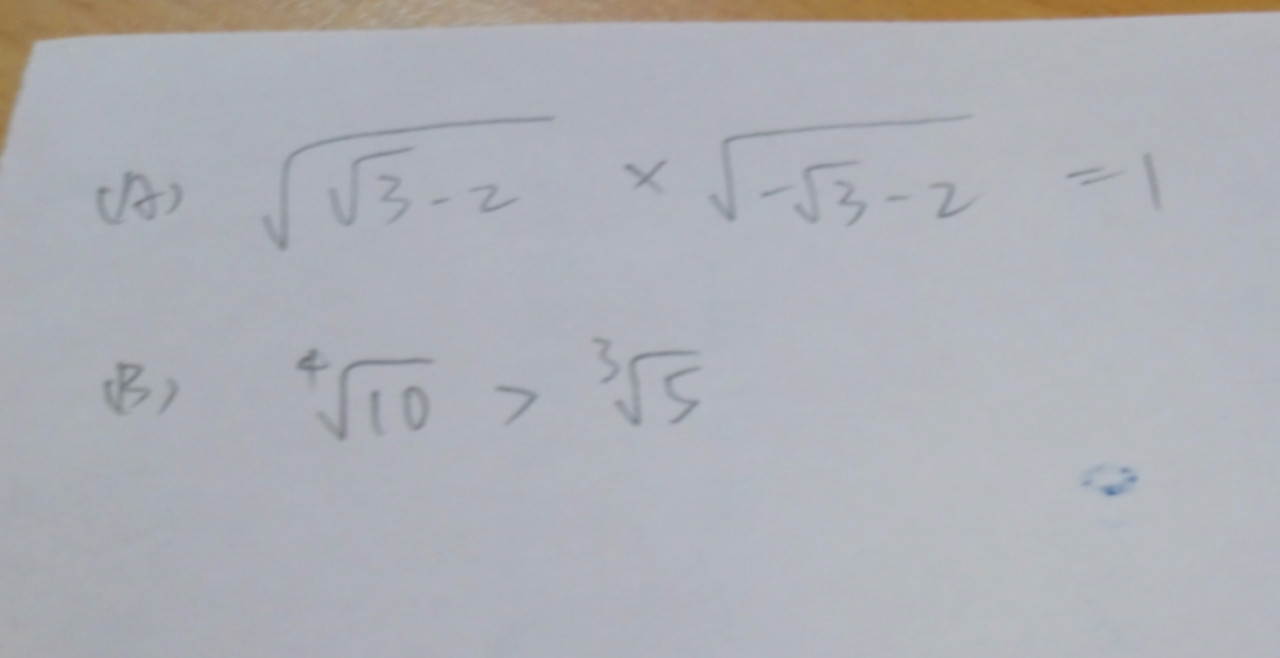 (A) √(√3-2) × √(-√3-2) = 1
(B) ⁴√10 > ³√5